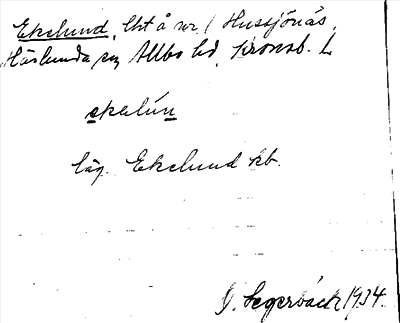 Ekelund, lht å nr 1 Hussjönäs,
Härlunda sn, Allbo hd, Kronob. L
ekelún
läg. Ekelund kb.
D. Segerbäck 1934.